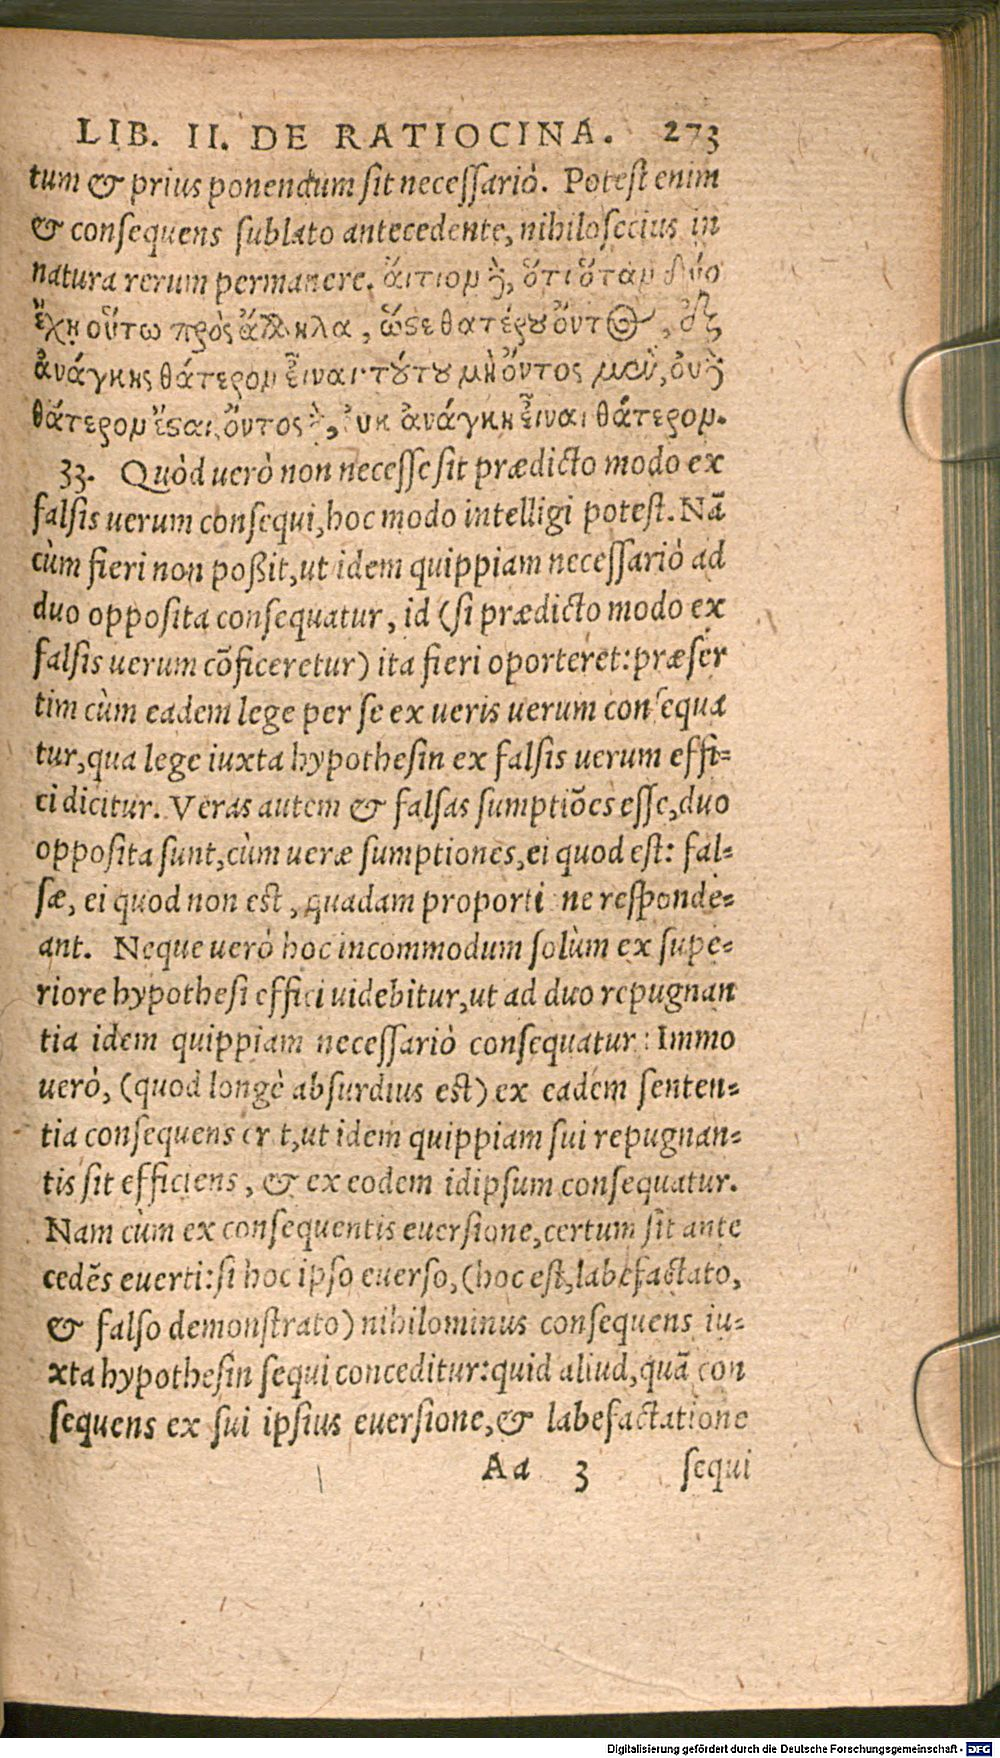 LIB. II. DE RATIOCINA. 273
tum & prius ponendum sit necessariò. Potest enim
& consequens sublato antecedente, nihilosecius in
natura rerum permanere. ἄιτιομ δ̀, ὅτι ὅταμ δύο
ἔχῃ οὕτω πρὸς ἄλληλα, ὥςε θατέρου ὄντος, ἐξ
ἀνάγκης θάτερομ εἶναι· τούτου μὴ ὄντος μεν, οὐδὲ
θάτερομ ἔςαι, ὄντος δ̀, οὐκ ἀνάγκη εἶναι θάτερομ.
33. Quòd uerò non necesse sit prædicto modo ex
falsis uerum consequi, hoc modo intelligi potest. Nã
cùm fieri non poßit, ut idem quippiam necessariò ad
duo opposita consequatur, id (si prædicto modo ex
falsis uerum cõficeretur) ita fieri oporteret: præser
tim cùm eadem lege per se ex ueris uerum consequa
tur, qua lege iuxta hypothesin ex falsis uerum effi=
ci dicitur. Veras autem & falsas sumptiões esse, duo
opposita sunt, cùm ueræ sumptiones, ei quod est: fal=
sæ, ei quod non est, quadam proporti ne responde=
ant. Neque uerò hoc incommodum solùm ex supe=
riore hypothesi effici uidebitur, ut ad duo repugnan
tia idem quippiam necessariò consequatur: Immo
uerò, (quod longè absurdius est) ex eadem senten=
tia consequens er t, ut idem quippiam sui repugnan=
tis sit efficiens, & ex eodem idipsum consequatur.
Nam cùm ex consequentis euersione, certum sit ante
cedẽs euerti: si hoc ipso euerso, (hoc est, labefactato,
& falso demonstrato) nihilominus consequens iu=
xta hypothesin sequi conceditur: quid aliud, quã con
sequens ex sui ipsius euersione, & labefactatione
Aa 3 sequi
Digitalisierung gefördert durch die Deutsche Forschungsgemeinschaft - DFG